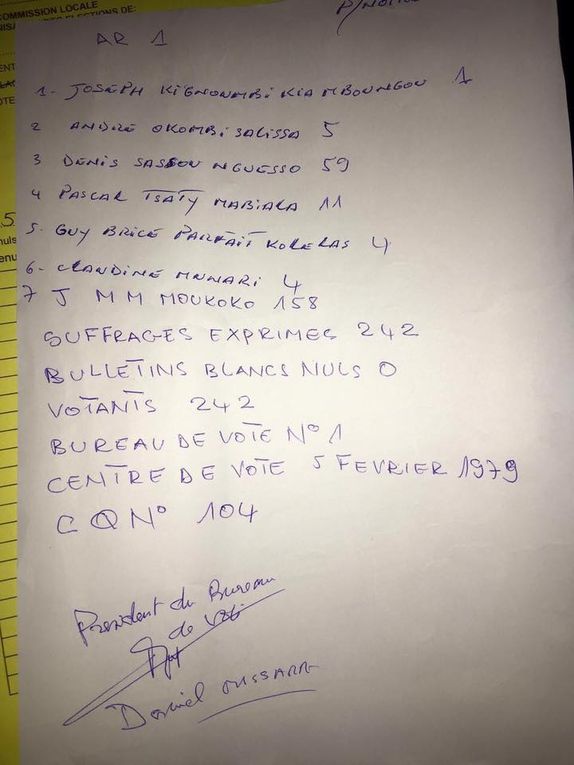 COMMISSION LOCALE
ELECTIONS DE:
AR 1
1- JOSEPH KIGNOUMBI KIA MBOUNGOU 1
2 ANDRE OKOMBI SALISSA 5
3 DENIS SASSOU NGUESSO 59
4 PASCAL TSATY MABIALA 11
5. GUY BRICE PARFAIT KOLELAS 4
6- CLANDINE MUNARI 4
7 J M M MOUKOKO 158
SUFFRAGES EXPRIMES 242
BULLETINS BLANCS NULS 0
VOTANTS 242
BUREAU DE VOTE N° 1
CENTRE DE VOTE 5 FEVRIER 1979
C Q N° 104
President du Bureau
de Vote
Daniel